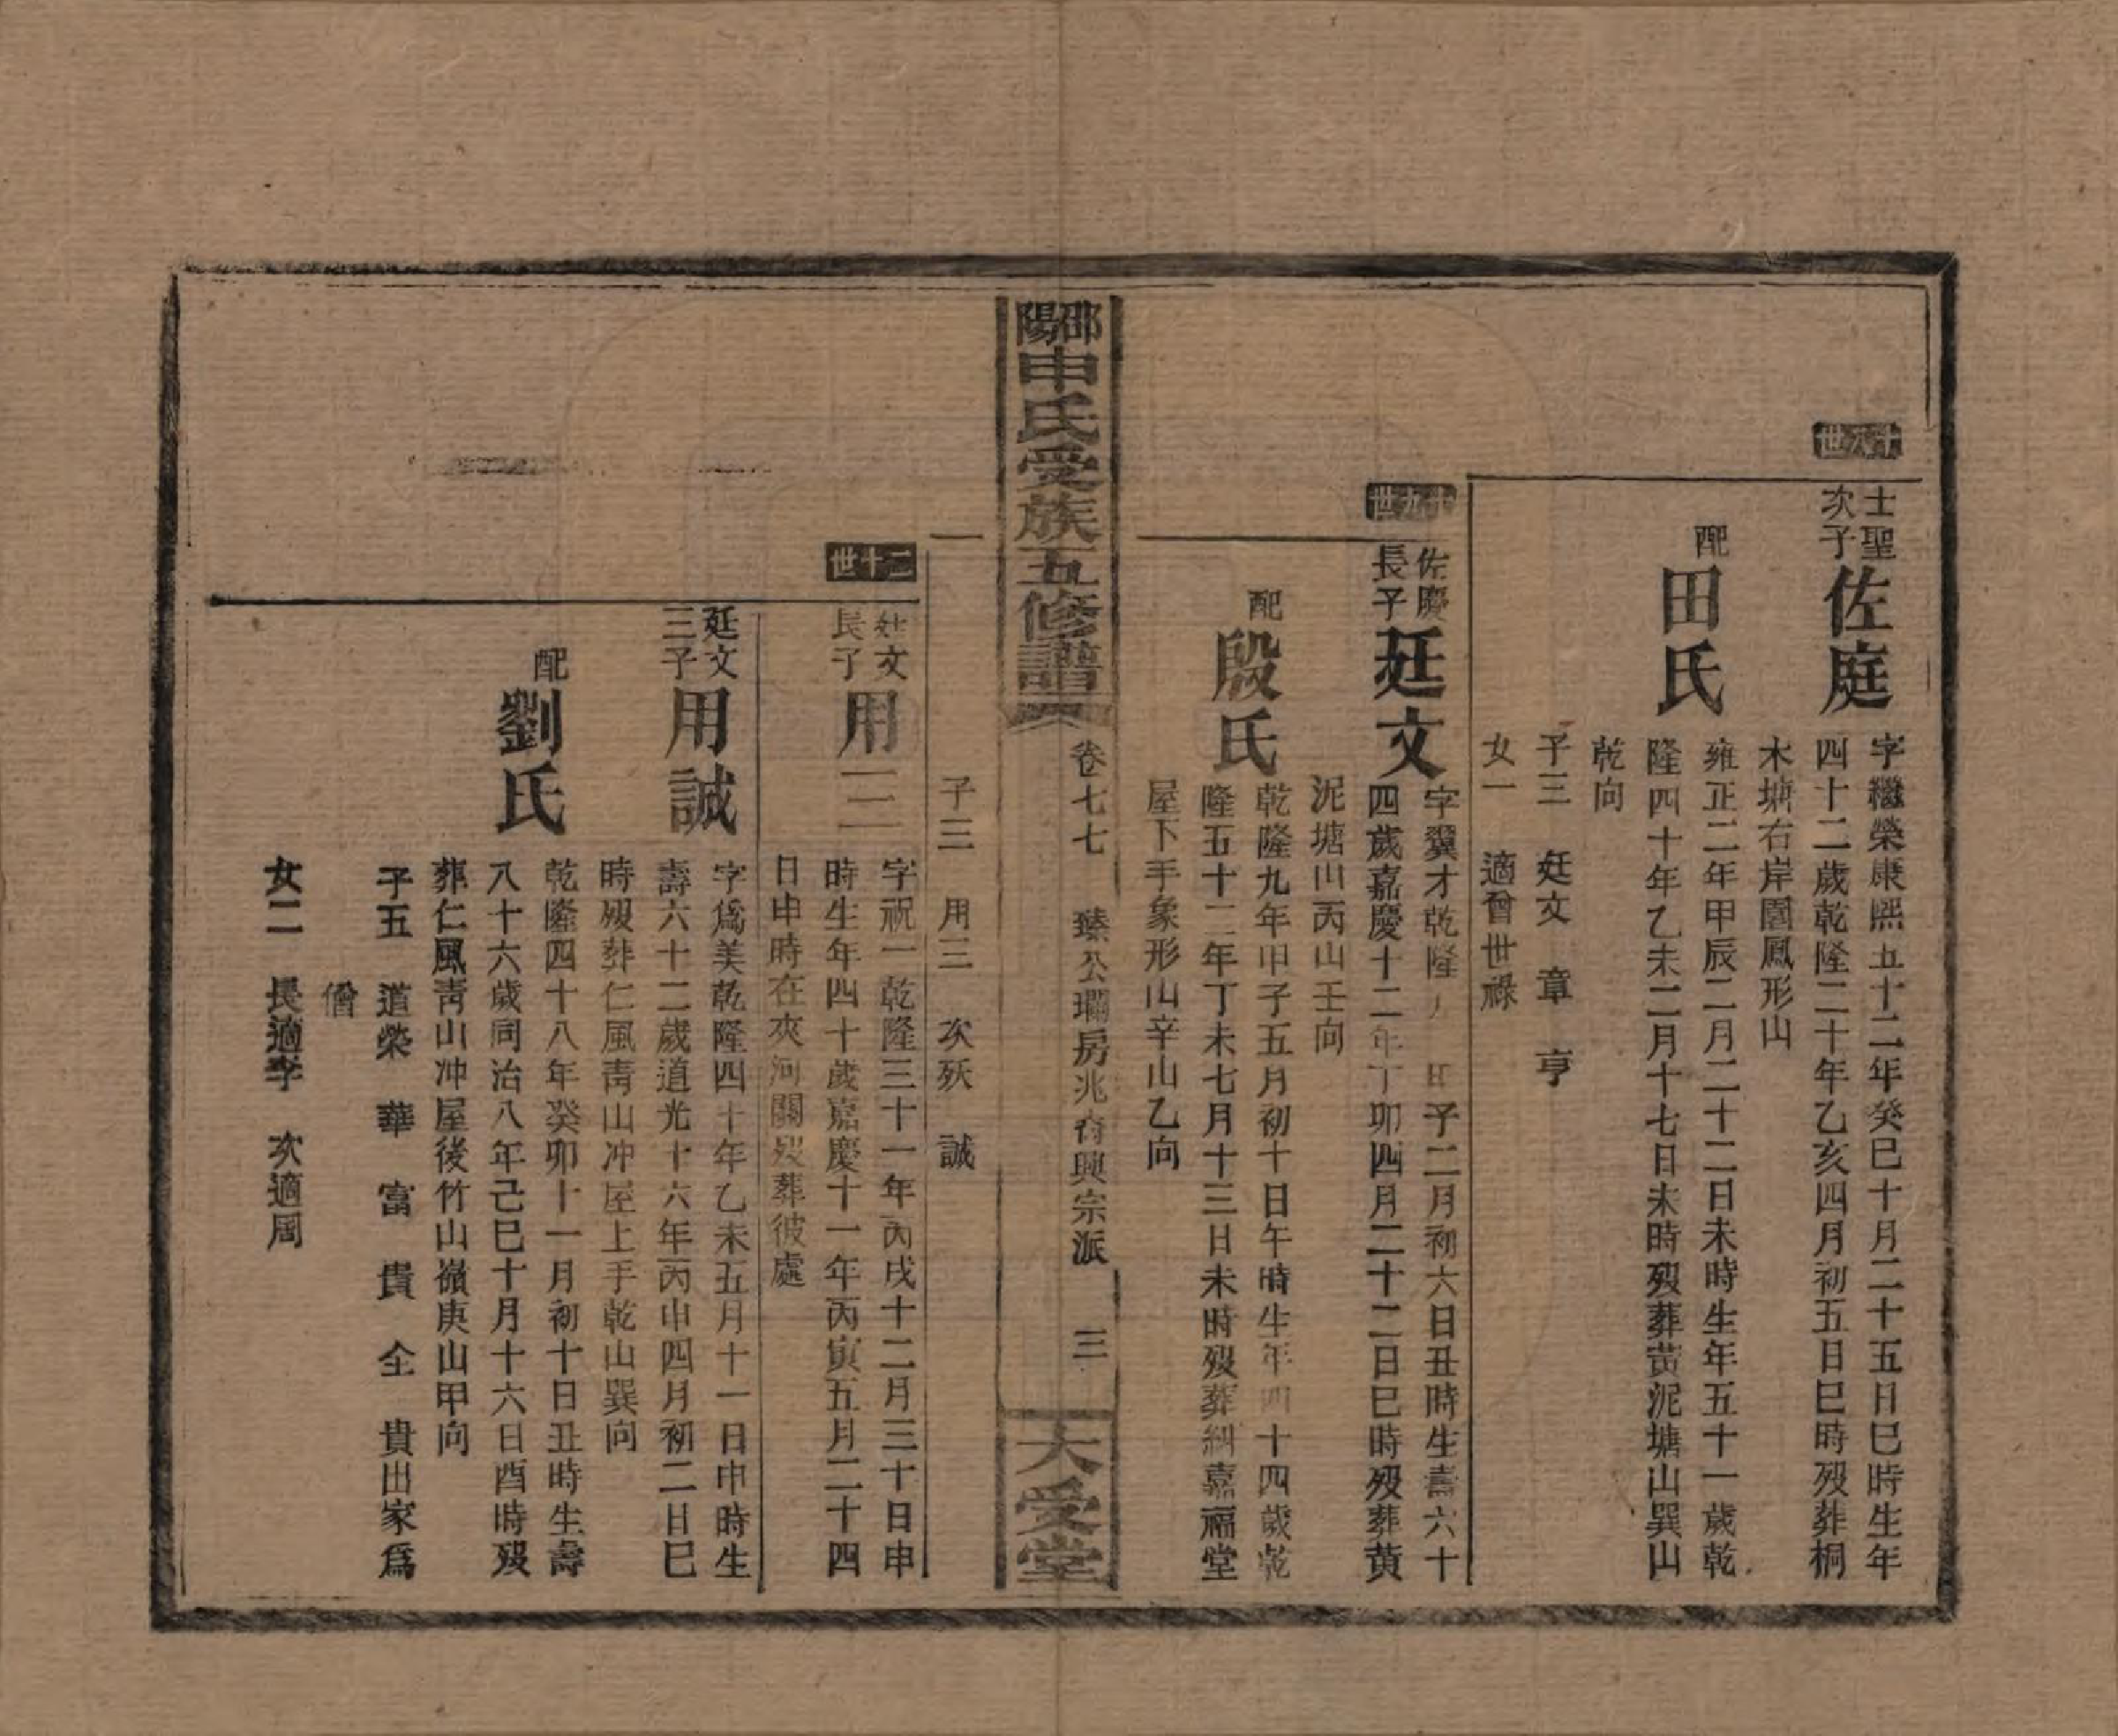 十八世
士聖
次子
佐庭
字繼榮康熙五十二年癸巳十月二十五日巳時生年
四十二歲乾隆二十年乙亥四月初五日巳時歿葬桐
木塘右岸圍鳳形山
配
田氏
雍正二年甲辰二月二十二日未時生年五十一歲乾
隆四十年乙未二月十七日未時歿葬黄泥塘山巽山
乾向
子三 廷文 章 亨
女一 適曾世祿
十九世
佐慶
長子
廷文
字翼才乾隆 子二月初六日丑時生壽六十
四歲嘉慶十二年丁卯四月二十二日巳時歿葬黄
泥塘山丙山壬向
配
殷氏
乾隆九年甲子五月初十日午時生年四十四歲乾
隆五十二年丁未七月十三日未時歿葬糾嘉福堂
屋下手象形山辛山乙向
邵陽申氏受族五修譜
卷七七 臻公瓓房兆裔興宗派 三
大受堂
子三 用三 次殀 誠
二十世
廷文
長子
用三
字祝一乾隆三十一年丙戌十二月三十日申
時生年四十歲嘉慶十一年丙寅五月二十四
日申時在夾河關歿葬彼處
廷文
三子
用誠
字爲美乾隆四十年乙未五月十一日申時生
壽六十二歲道光十六年丙申四月初二日巳
時歿葬仁風靑山冲屋上手乾山巽向
配
劉氏
乾隆四十八年癸卯十一月初十日丑時生壽
八十六歲同治八年己巳十月十六日酉時歿
葬仁風靑山冲屋後竹山嶺庚山甲向
子五 道榮 華 富 貴 全 貴出家爲
僧
女二 長適李 次適周